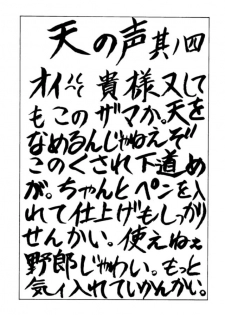 天の声其ノ四
オイ貴様又して
もこのザマか。天を
なめるんじゃねえぞ
このくされ下道め
が。ちゃんとペンを入
れて仕上げもしっかり
せんかい。使えねぇ
野郎じゃわい。もっと
気ィ入れていかんかい。